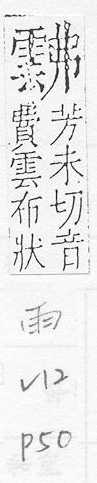 芳未切音
費雲布狀
雨
V12
P50